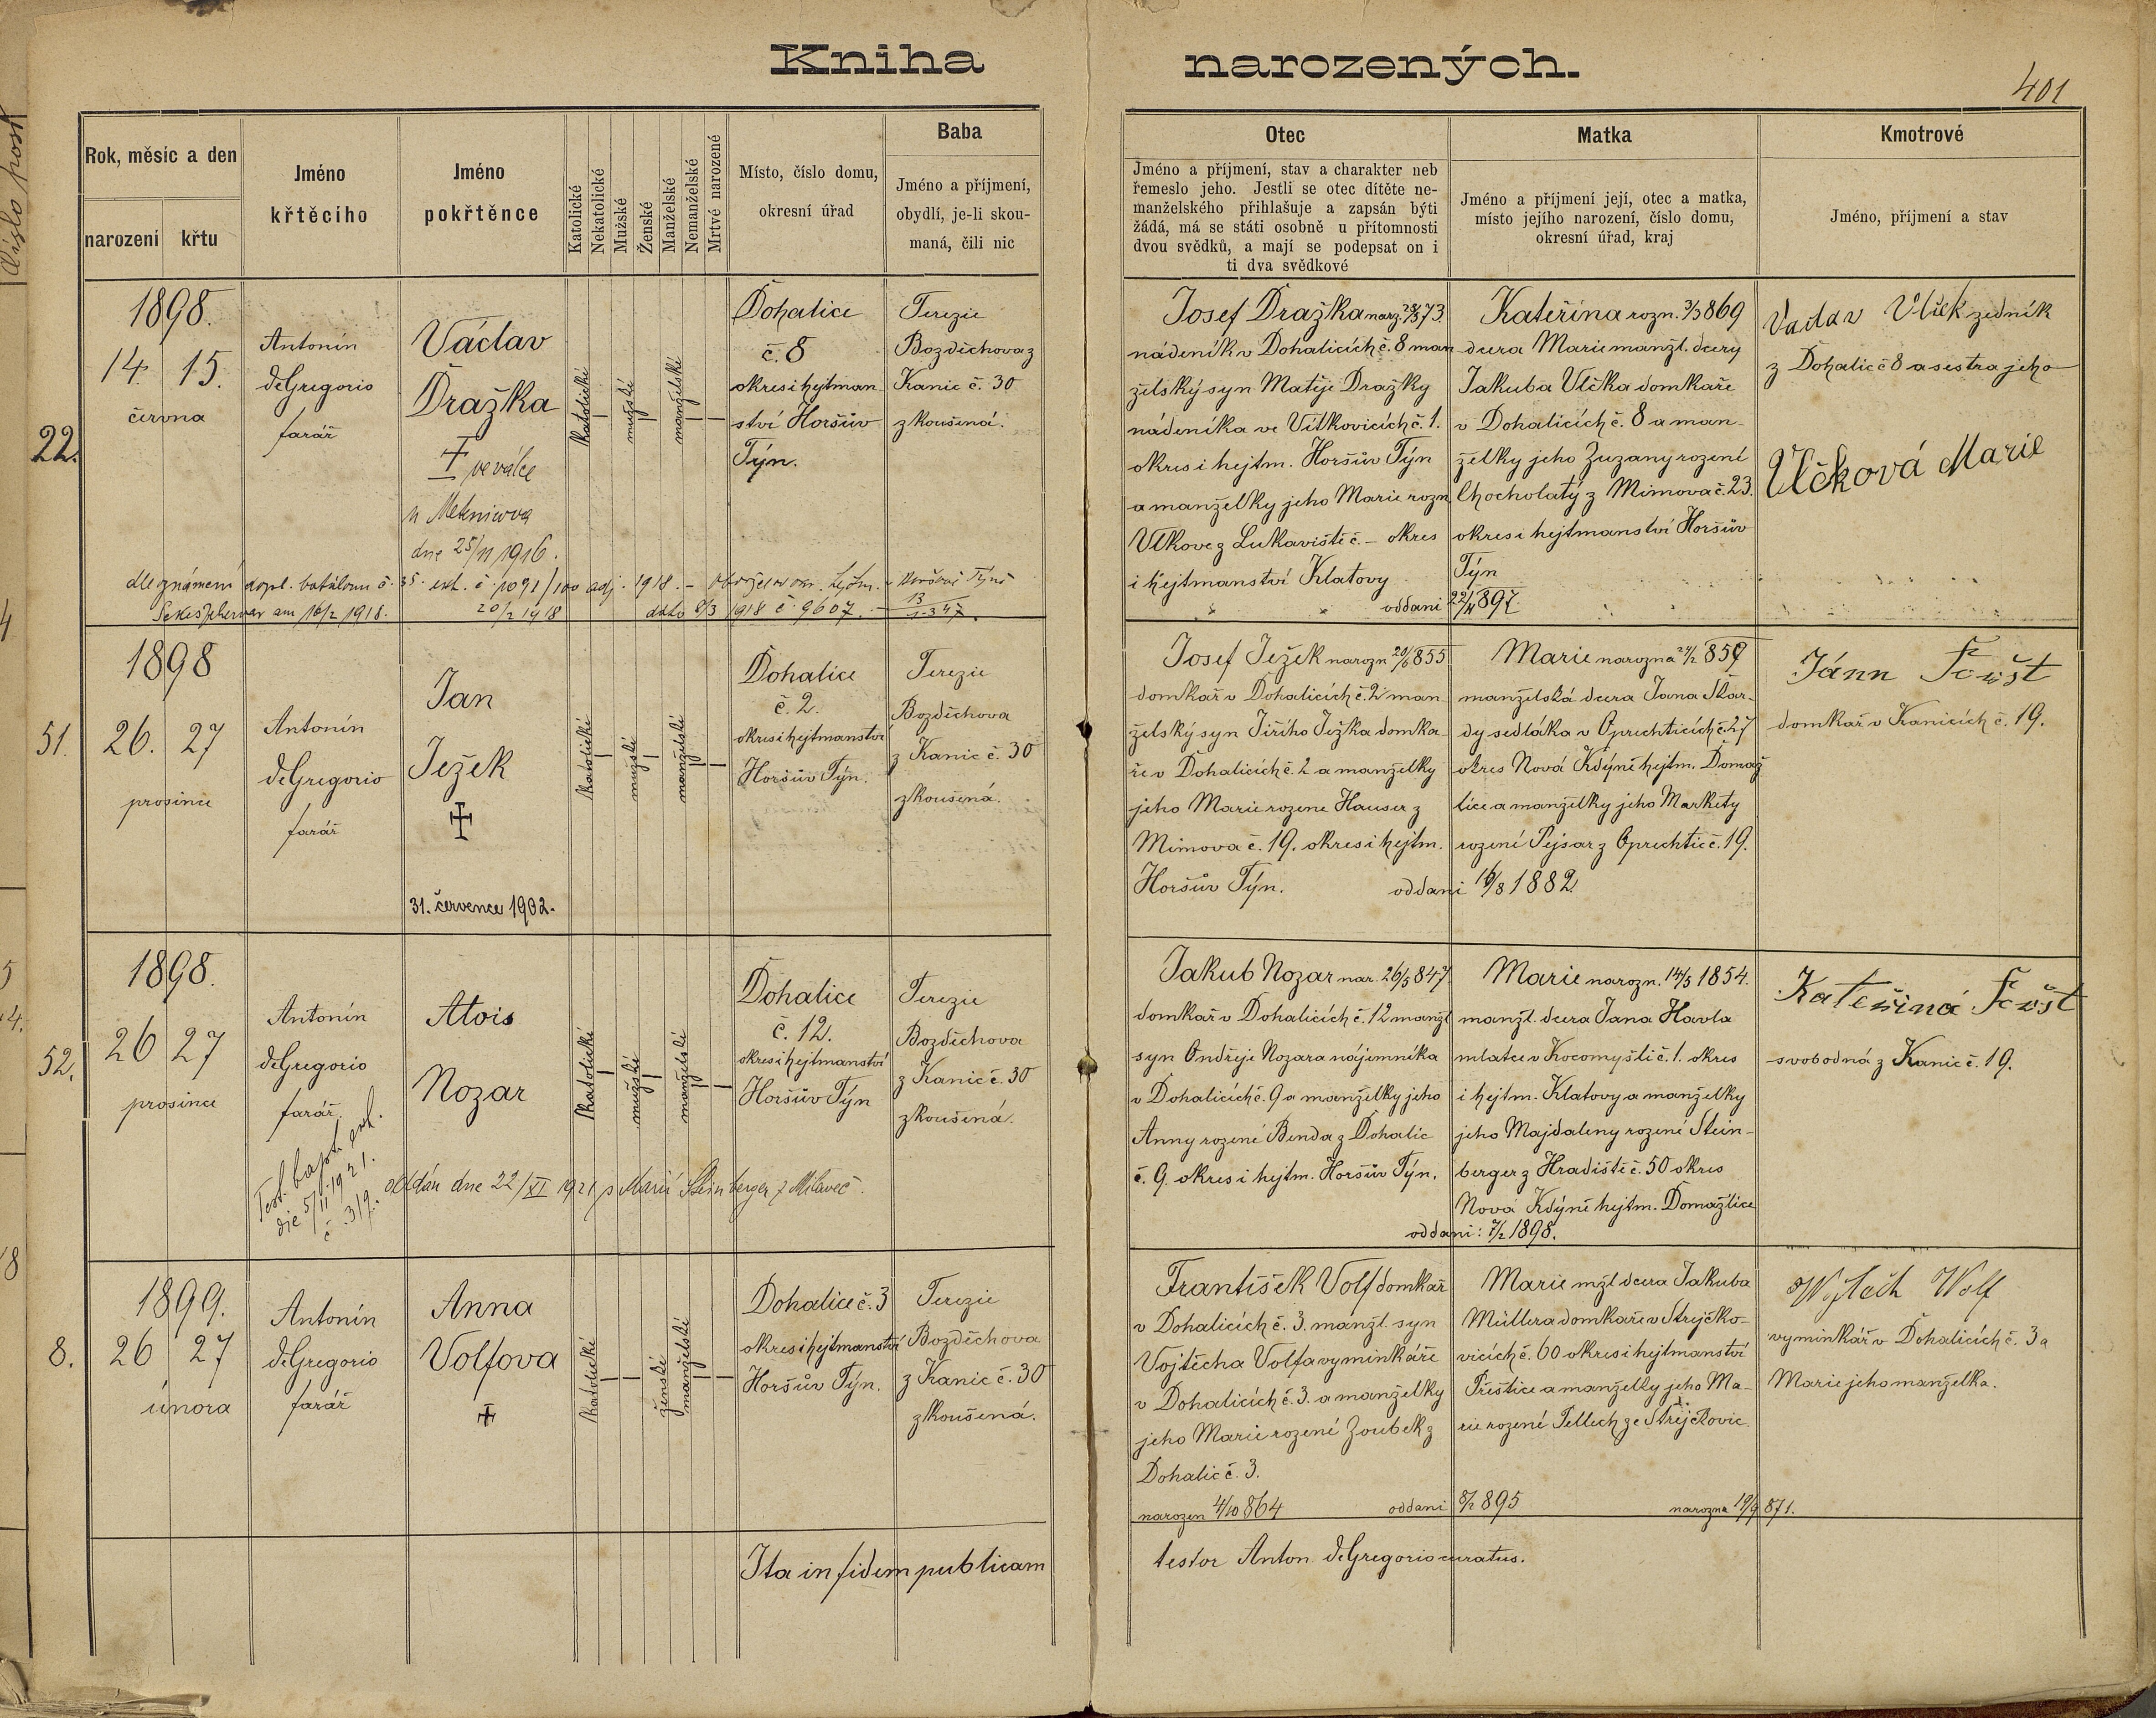 Kniha narozených.
401
Číslo post
Rok, měsíc a den
narození
křtu
Jméno
křtěcího
Jméno
pokřtěnce
Katolické
Nekatolické
Mužské
Ženské
Manželské
Nemanželské
Mrtvé narozené
Místo, číslo domu,
okresní úřad
Baba
Jméno a příjmení,
obydlí, je-li skou-
maná, čili nic
Otec
Jméno a příjmení, stav a charakter neb
řemeslo jeho. Jestli se otec dítěte ne-
manželského přihlašuje a zapsán býti
žádá, má se státi osobně u přítomnosti
dvou svědků, a mají se podepsat on i
ti dva svědkové
Matka
Jméno a příjmení její, otec a matka,
místo jejího narození, číslo domu,
okresní úřad, kraj
Kmotrové
Jméno, příjmení a stav
22.
1898.
14. 15.
června
Antonín
deGregorio
farář
Václav
Dražka
† ve válce
dne 25/11 1916.
katolické
mužské
manželské
Dohalice
č. 8
okres i hejtman
ství Horšův
Týn.
Terezie
Bozděchova z
Kanic č. 30
zkoušená.
Josef Dražka narz. 28/3 73.
nádeník v Dohalicích č. 8 man
želský syn Matěje Dražky
nádeníka ve Vítkovicích č. 1.
okres i hejtm. Horšův Týn
a manželky jeho Marie rozn
Vlkove z Lukaviště č. – okres
i hejtmanství Klatovy
oddani 22/11 897.
Kateřina rozn. 3/3 869
dcera Marie manžl. dcery
Jakuba Vlčka domkaře
v Dohalicích č. 8 a man-
želky jeho Zuzany rozené
Chocholatý z Mimova č. 23.
okres i hejtmanství Horšův
Týn
Vaclav Vlček zedník
z Dohalic č 8 a sestra jeho
Vlčková Marie
dle známení dopl. batalionu č. 35. exh. č. 1091/100 adj. 1918. –
am 16/2 1918. 20/2 1918 dato 8/3 1918 č. 9607. –
51.
1898
26. 27
prosince
Antonín
deGregorio
farář
Jan
Ježek
†
31. července 1902.
katolické
mužské
manželské
Dohalice
č. 2.
okres i hejtmanství
Horšův Týn.
Terezie
Bozděchova
z Kanic č. 30
zkoušená.
Josef Ježek narozn 20/6 855
domkař v Dohalicích č. 2 man
želský syn Jiřího Ježka domka
ře v Dohalicích č. 2 a manželky
jeho Marie rozene Hauser z
Mimova č. 19. okres i hejtm.
Horšův Týn. oddani 16/8 1882
Marie narozna 24/2 859
manželská dcera Jana Škar-
dy sedláka v Oprechticích č. 27
okres Nová Kdýně hejtm. Domaž
lice a manželky jeho Markety
rozené Pejsar z Oprechtic č. 19.
Jánn Foišt
domkař v Kanicích č. 19.
52.
1898.
26 27
prosince
Antonín
deGregorio
farář.
Test. bapt. ext.
die 5/11 1921.
č. 319.
Alois
Nozar
oddán dne 22/XI 1921 s Marií Steinberger z Milaveč.
katolické
mužské
manželské
Dohalice
č. 12.
okres i hejtmanství
Horšův Týn
Terezie
Bozděchova
z Kanic č. 30
zkoušená.
Jakub Nozar nar. 26/5 847
domkař v Dohalicích č. 12 manžl
syn Ondřeje Nozara nájemníka
v Dohalicích č. 9 a manželky jeho
Anny rozené Benda z Dohalic
č. 9. okres i hejtm. Horšův Týn.
oddani: 7/2 1898.
Marie narozn. 14/5 1854.
manžl. dcera Jana Havla
mlatce v Kocomyšli č. 1. okres
i hejtm. Klatovy a manželky
jeho Majdaleny rozené Stein-
berger z Hradiště č. 50 okres
Nová Kdýně hejtm. Domažlice
Kateřina Foišt
svobodná z Kanic č. 19.
8.
1899.
26 27
února
Antonín
deGregorio
farář
Anna
Volfova
†
katolické
ženské
manželské
Dohalice č. 3
okres i hejtmanství
Horšův Týn.
Terezie
Bozděchova
z Kanic č. 30
zkoušená.
František Volf domkař
v Dohalicích č. 3. manžl. syn
Vojtěcha Volfa vyminkáře
v Dohalicích č. 3. a manželky
jeho Marie rozené Zoubek z
Dohalic č. 3.
narozen 4/10 864 oddani 8/2 895
Marie mžl dcera Jakuba
Müllera domkaře v Strejčko-
vicích č. 60 okres i hejtmanství
Přeštice a manželky jeho Ma-
rie rozené Tellech ze Strejčkovic
narozna 19/9 871.
Wojtěch Wolf
vyminkář v Dohalicích č. 3 a
Marie jeho manželka.
Ita in fidem publicam
testor Anton deGregorio curatus.